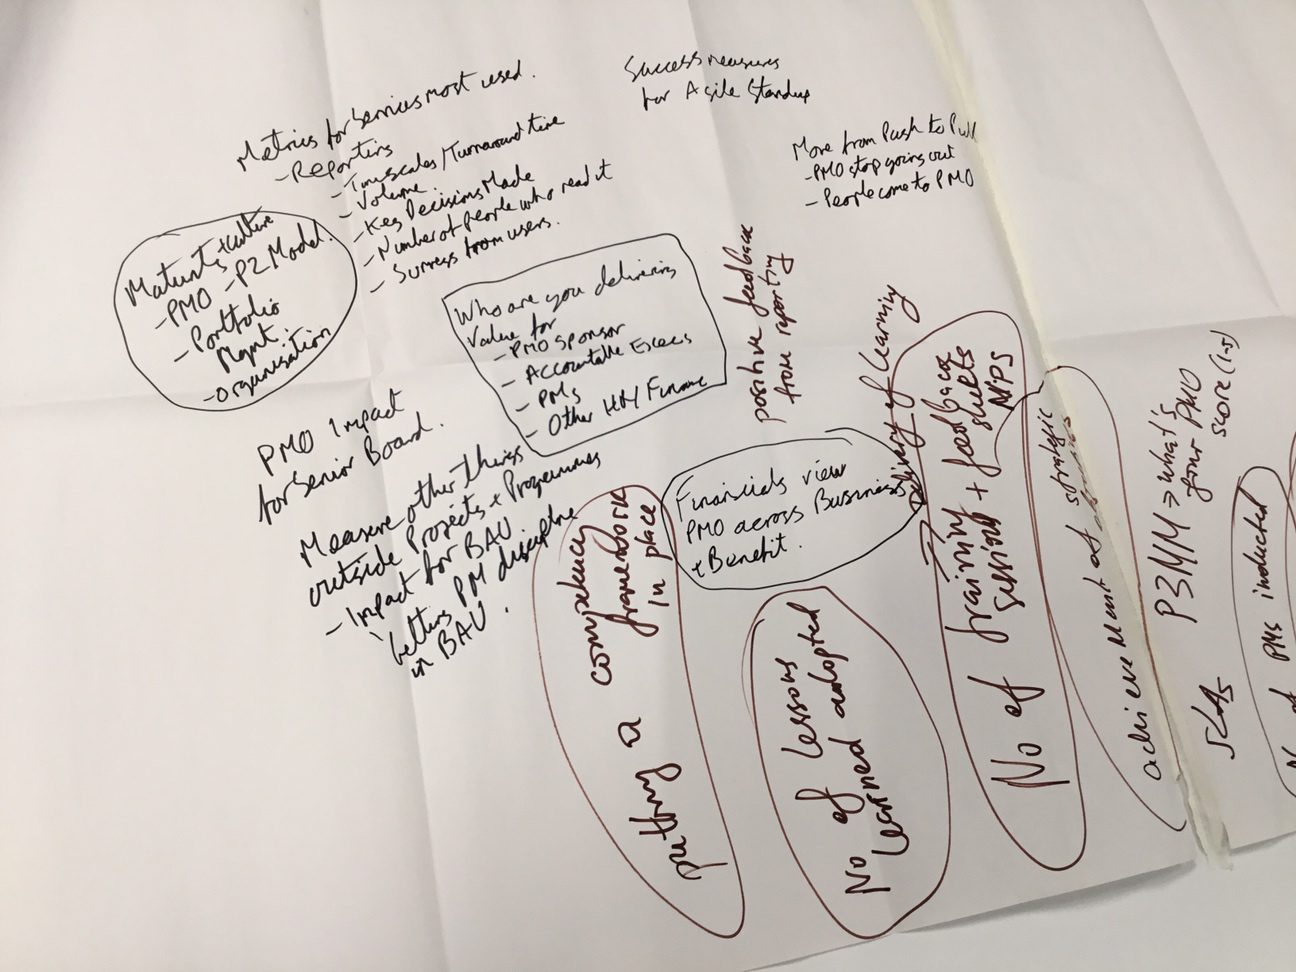 Metrics for Services most used.
- Reporting
- Timescales/Turnaround time
- Volume.
- Key Decisions Made
- Number of people who read it
- Surveys from users.
Success measures
for Agile Standup
Move from Push to Pull
- PMO stop going out
- People come to PMO
Maturity + culture
- PMO - P2 Model.
- Portfolio
Mgmt
- organisation
Who are you delivering
value for
- PMO Sponsor
- Accountable Execs
- PMs
- Other HR/Finance
PMO Impact
for Senior Board.
Measure other things
outside Projects + Programmes
- Impact for BAU
better PM discipline
in BAU.
Financials view
PMO across Business
+ Benefit.
positive feedback
from reporting
putting a competency
framework
in place
No of lessons
learned adopted
Delivery of learning
No of training + feedback
session sheets
NPS
achievement of strategic
P3MM => what's
your PMO
score (1-5)
SLAs
No of PMs inducted